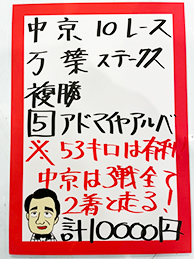 中京10レース
万葉ステークス
複勝
5 アドマイヤアルバ
※53キロは有利
中京は3戦全て
2着と走る!
計10000円